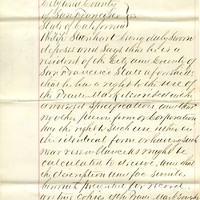 City and County
of San Francisco } ss
State of California
being duly sworn
deposes and says that he is a
resident of the City and County of
San Francisco State aforesaid
that he has a right to the use of
the Trade Mark described in the
annexed specification and that
no other person firm or corporation
has the right to such use either in
the identical form or having such
near resemblance as might be
calculated to deceive, and that
the description and fac similes
hereunto presented for record
are true copies of the Trade Mark sought